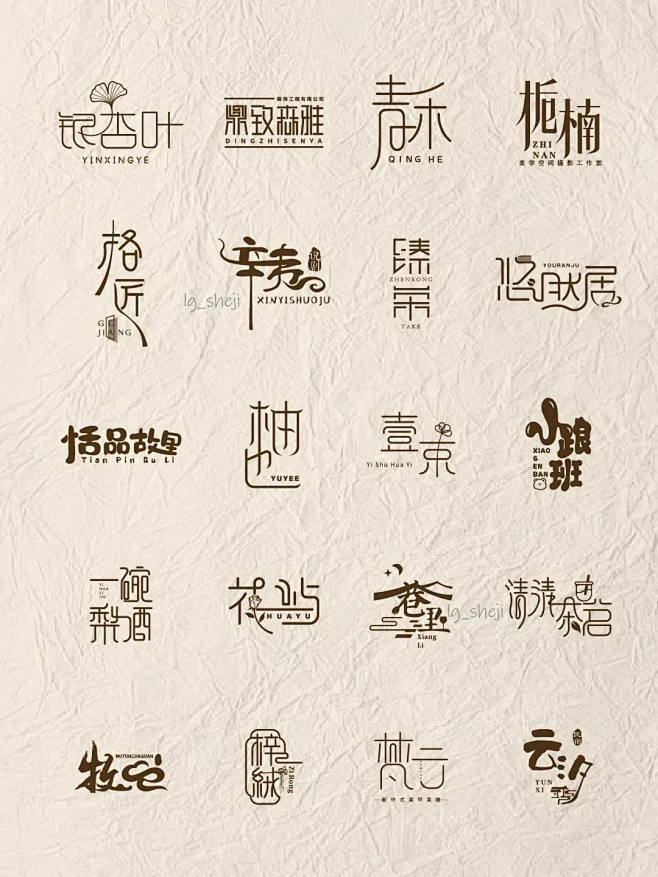 银杏叶
YINXINGYE
装饰工程有限公司
鼎致森雅
DINGZHISENYA
青禾
QING HE
栀楠
ZHI
NAN
美学空间摄影工作室
格匠
GE
JIANG
XINYISHUOJU
lg_sheji
臻荣
ZHENRONG
TAKE
悠然居
YOURANJU
恬品故里
Tian Pin Gu Li
柚也
YUYEE
壹束
Yi Shu Hua Yi
小跟班
XIAO
G
EN
BAN
一碗
梨酒
YI
WAN
LI
JIU
花屿
HUAYU
巷里
Xiang
Li
lg_sheji
清清茶茗
MUYUNCHAGUAN
梓绒
Zi Rong
梵云
新中式美甲美睫
云汐
民宿
YUN
XI